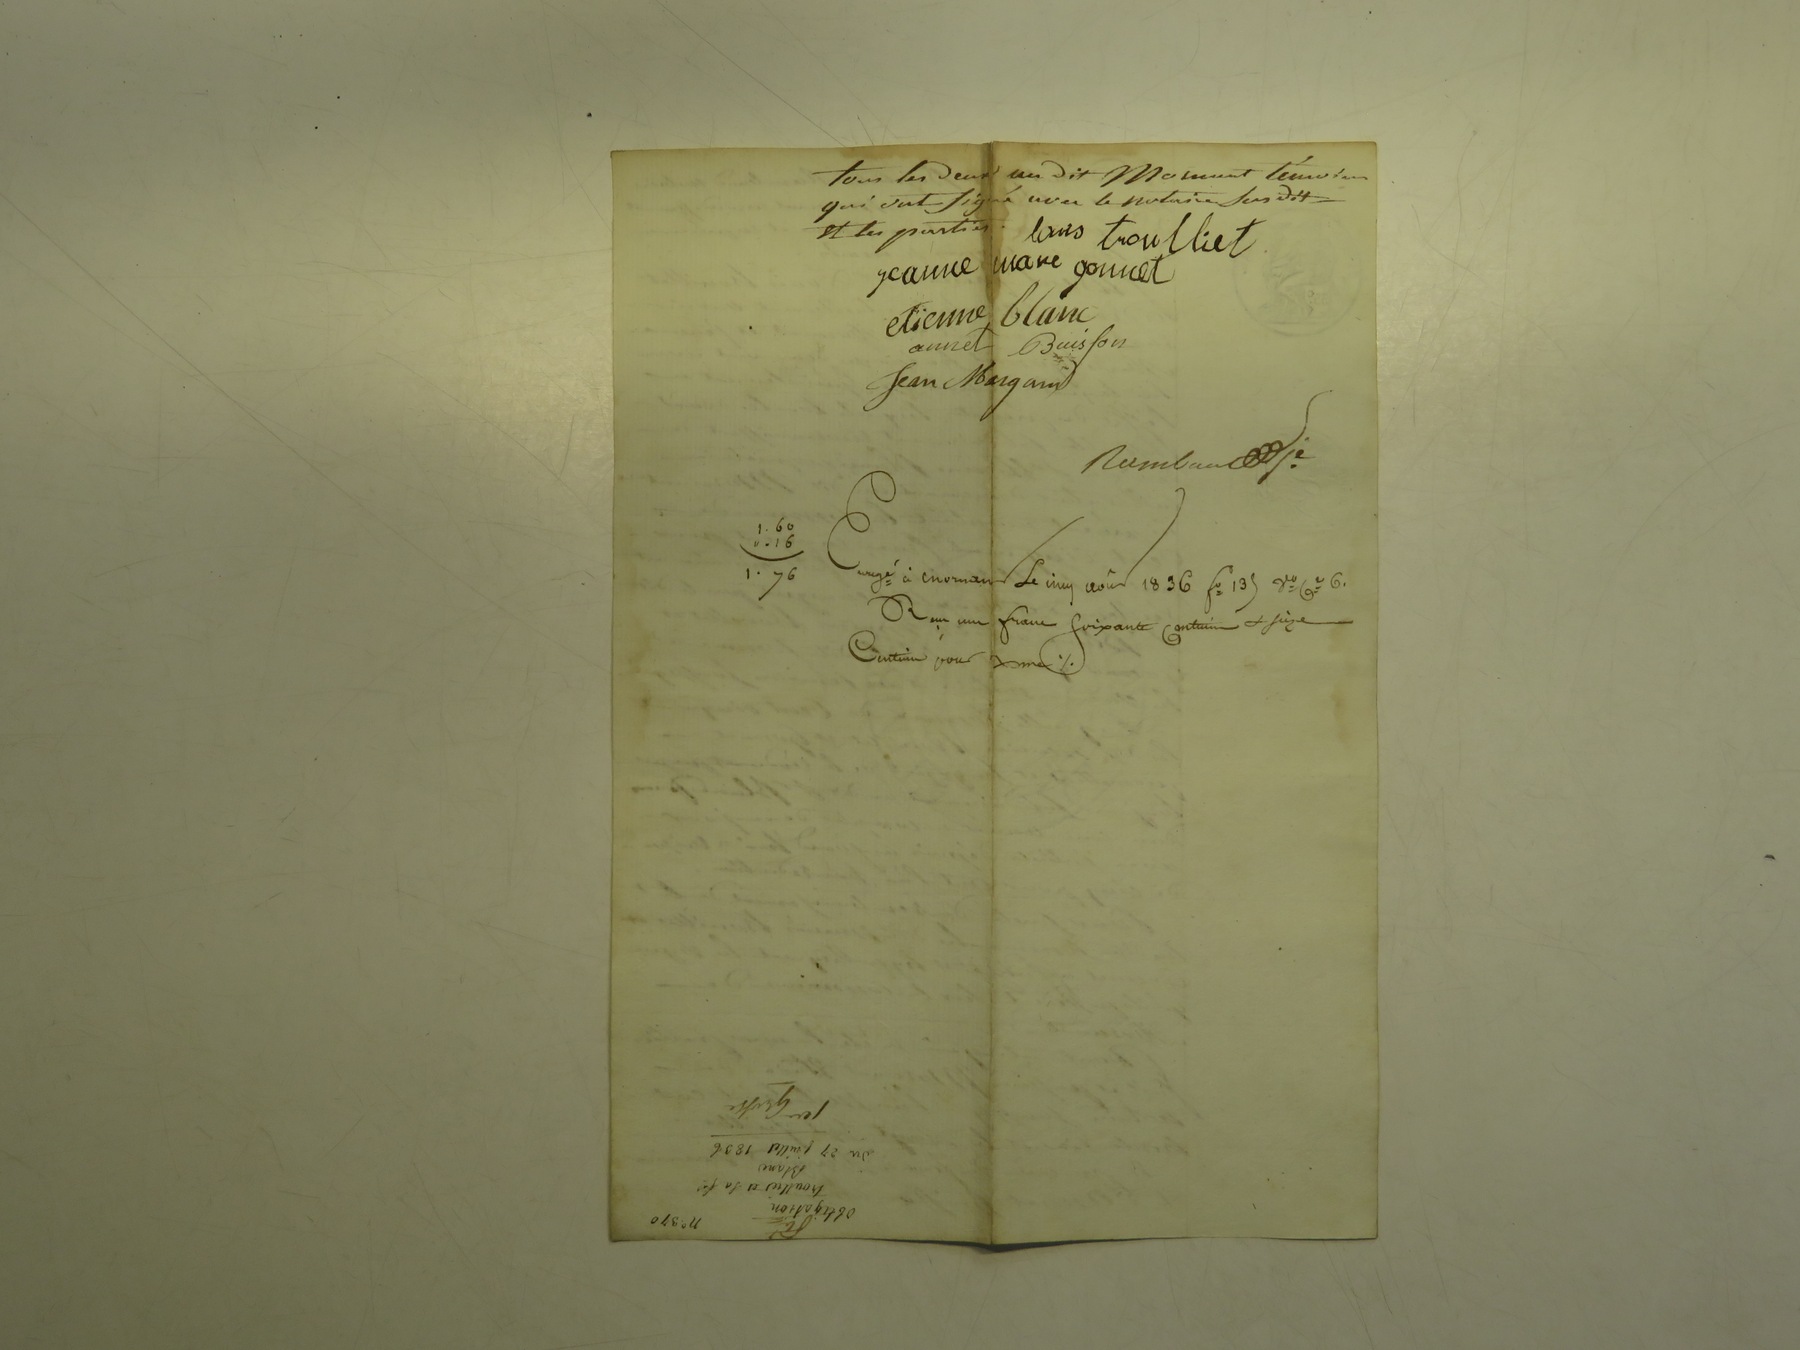 tous les deux au dit Mornant témoins
qui ont signé avec le notaire susdit
et les parties.
louis troulliet
jeanne marie gonnet
etienne blanc
annet Buisson
Jean Margand
1. 60
0. 16
1. 76
Enregé à mornant Le cinq août 1836 fo 135 Vo Ce 6.
Reçu un franc soixante centime & seize
Centime pour Xme %.
No 370
Obligation
troulliet et sa fe
Blanc
du 27 juillet 1836